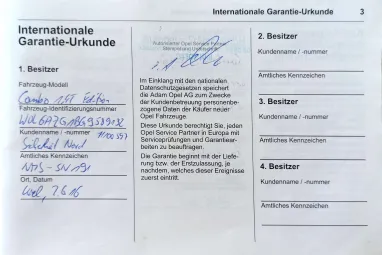 Internationale Garantie-Urkunde 3
Internationale
Garantie-Urkunde
1. Besitzer
Fahrzeug-Modell
Combo
Edition
Fahrzeug-Identifizierungsnummer
Kundenname / -nummer
Nord
Amtliches Kennzeichen
NMS-SN 191
Ort, Datum
7.6.16
Autorisierter Opel Service Partner
Im Einklang mit den nationalen
Datenschutzgesetzen speichert
die Adam Opel AG zum Zwecke
der Kundenbetreuung personenbe-
zogene Daten der Käufer neuer
Opel Fahrzeuge.
Diese Urkunde berechtigt Sie, jeden
Opel Service Partner in Europa mit
Serviceprüfungen und Garantiear-
beiten zu beauftragen.
Die Garantie beginnt mit der Liefe-
rung bzw. der Erstzulassung, je
nachdem, welches dieser Ereignisse
zuerst eintritt.
2. Besitzer
Kundenname / -nummer
Amtliches Kennzeichen
3. Besitzer
Kundenname / -nummer
Amtliches Kennzeichen
4. Besitzer
Kundenname / -nummer
Amtliches Kennzeichen